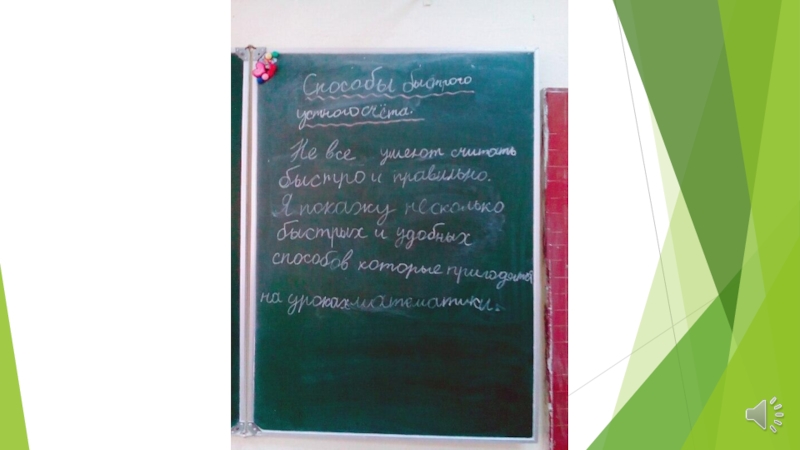 Способы быстрого
устного счёта.
Не все умеют считать
быстро и правильно.
Я покажу несколько
быстрых и удобных
способов которые пригодятся
на уроках математики.